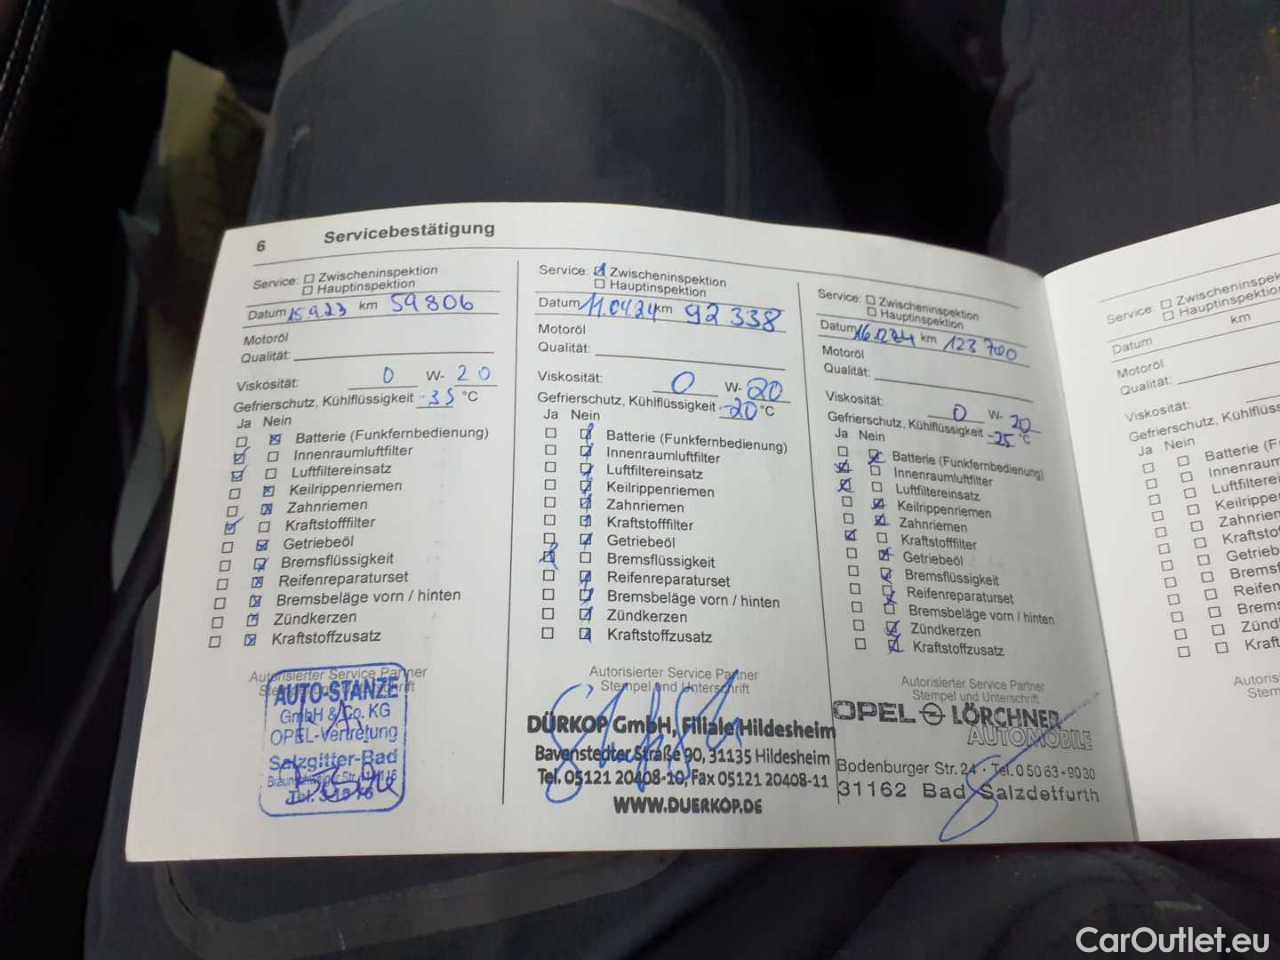 6 Servicebestätigung
Service: Zwischeninspektion
Hauptinspektion
Datum 15.9.23 km 59806
Motoröl
Qualität:
Viskosität: 0 W- 20
Gefrierschutz, Kühlflüssigkeit -35 °C
Ja Nein
Batterie (Funkfernbedienung)
Innenraumluftfilter
Luftfiltereinsatz
Keilrippenriemen
Zahnriemen
Kraftstofffilter
Getriebeöl
Bremsflüssigkeit
Reifenreparaturset
Bremsbeläge vorn / hinten
Zündkerzen
Kraftstoffzusatz
Autorisierter Service Partner
Stempel und Unterschrift
AUTO-STANZE
GmbH & Co. KG
OPEL-Vertretung
Salzgitter-Bad
Service: Zwischeninspektion
Hauptinspektion
Datum 11.04.24 km 92 338
Motoröl
Qualität:
Viskosität: 0 W- 20
Gefrierschutz, Kühlflüssigkeit -20 °C
Ja Nein
Batterie (Funkfernbedienung)
Innenraumluftfilter
Luftfiltereinsatz
Keilrippenriemen
Zahnriemen
Kraftstofffilter
Getriebeöl
Bremsflüssigkeit
Reifenreparaturset
Bremsbeläge vorn / hinten
Zündkerzen
Kraftstoffzusatz
Autorisierter Service Partner
Stempel und Unterschrift
DÜRKOP GmbH, Filiale Hildesheim
Bavenstedter Straße 90, 31135 Hildesheim
Tel. 05121 20408-10, Fax 05121 20408-11
WWW.DUERKOP.DE
Service: Zwischeninspektion
Hauptinspektion
Datum km 123 700
Motoröl
Qualität:
Viskosität: 0 W- 20
Gefrierschutz, Kühlflüssigkeit -25 °C
Ja Nein
Batterie (Funkfernbedienung)
Innenraumluftfilter
Luftfiltereinsatz
Keilrippenriemen
Zahnriemen
Kraftstofffilter
Getriebeöl
Bremsflüssigkeit
Reifenreparaturset
Bremsbeläge vorn / hinten
Zündkerzen
Kraftstoffzusatz
Autorisierter Service Partner
Stempel und Unterschrift
OPEL LÖRCHNER
AUTOMOBILE
Bodenburger Str. 24 · Tel. 0 50 63 - 90 30
31162 Bad Salzdetfurth
Service: Zwischeninspe
Hauptinspektio
Datum km
Motoröl
Qualität:
Viskosität:
Gefrierschutz, Kühlflüss
Ja Nein
Batterie (F
Innenraum
Luftfilterei
Keilrippen
Zahnrie
Kraftsto
Getrieb
Bremsf
Reifen
Brems
Zünd
Kraft
Autoris
Stem
CarOutlet.eu